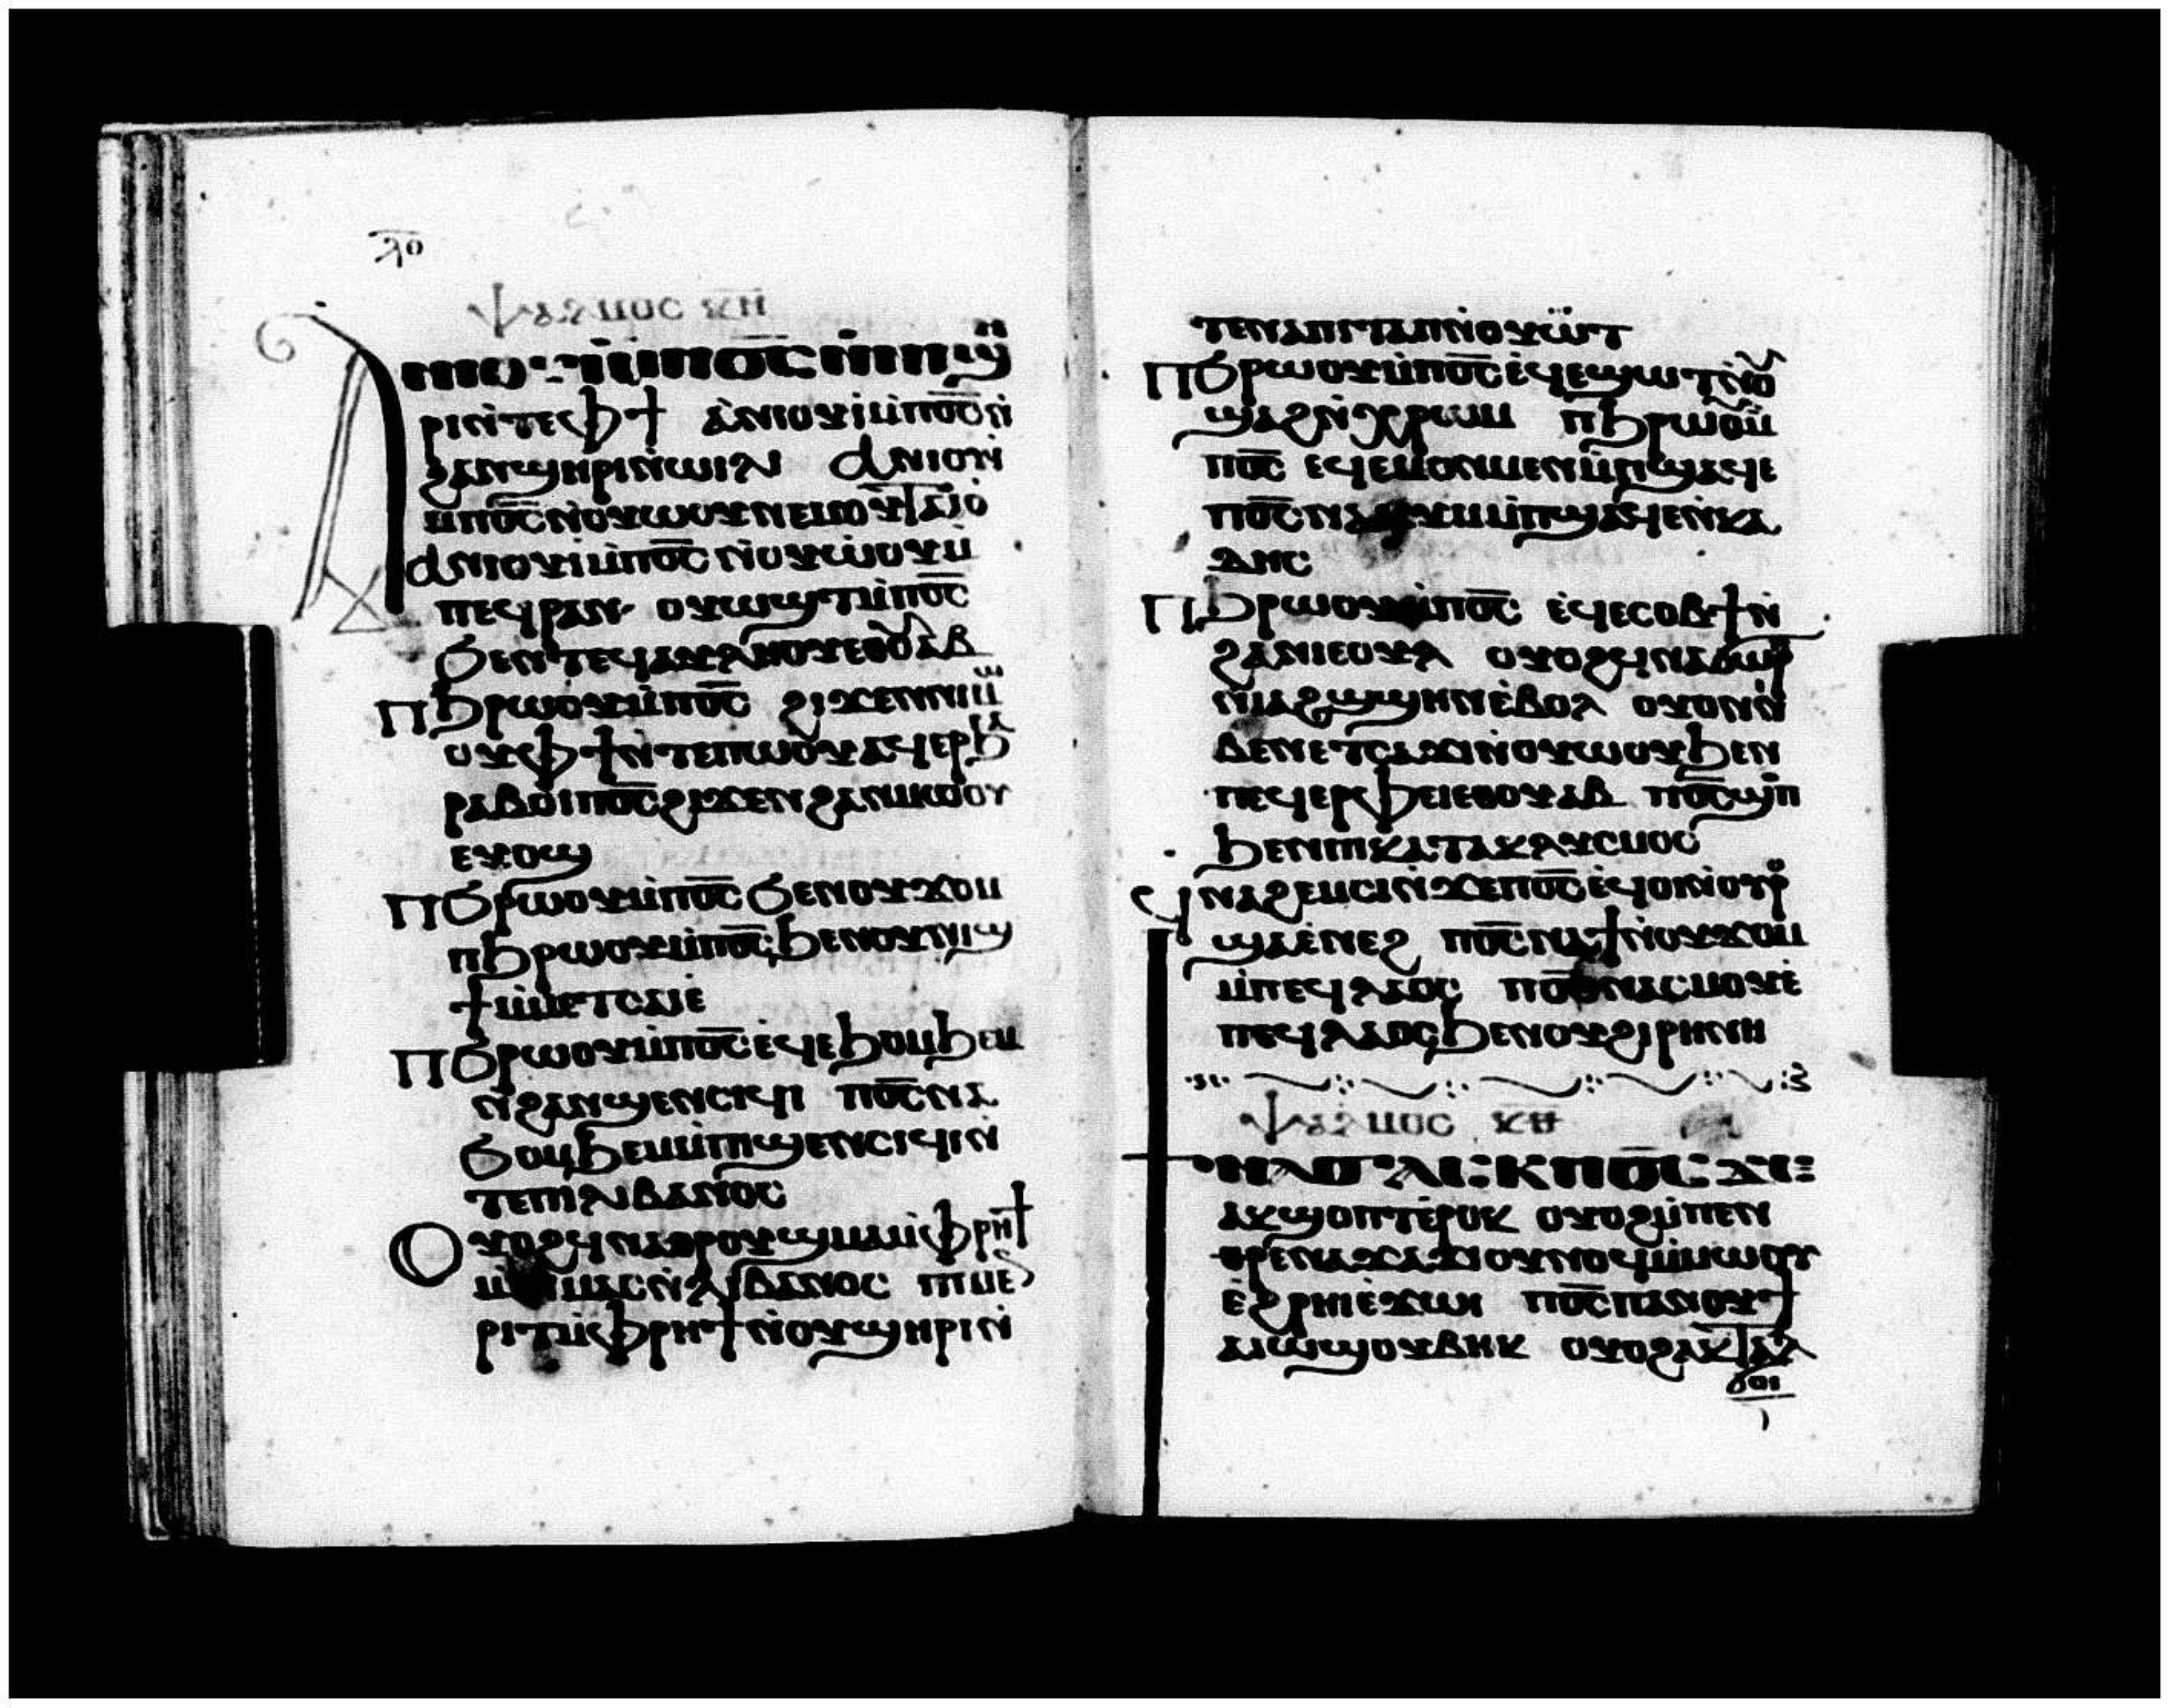 ⲗ̅ⲟ̅
ⲯⲁⲗⲙⲟⲥ ⲕ̅ⲏ̅
Ⲁⲛⲓⲟⲩⲓ̀ⲙ̀ⲡⲟ̅ⲥ̅ ⲛ̀ⲛⲓϣⲏ
ⲣⲓⲛ̀ⲧⲉⲫϯ ⲁ̀ⲛⲓⲟⲩⲓ̀ⲙ̀ⲡⲟ̅ⲥ̅ⲛ̀
ϩⲁⲛϣⲏⲣⲓⲛ̀ⲱⲓⲗⲓ ⲁⲛⲓⲟⲩⲓ̀
ⲙ̀ⲡⲟ̅ⲥ̅ⲛ̀ⲟⲩⲱⲟⲩⲛⲉⲙⲟⲩⲧⲁⲓⲟ̀
ⲁⲛⲓⲟⲩⲓ̀ⲙ̀ⲡⲟ̅ⲥ̅ ⲛ̀ⲟⲩⲱ̀ⲟⲩⲙ̀
ⲡⲉϥⲣⲁⲛ ⲟⲩⲱϣⲧⲙ̀ⲡⲟ̅ⲥ̅
ϧⲉⲛⲧⲉϥⲁⲩⲗⲏⲟⲩⲉⲑⲟⲩⲁⲃ
ⲡϧⲣⲱⲟⲩⲙ̀ⲡⲟ̅ⲥ̅ ϩⲓϫⲉⲛⲛⲓⲙⲱ
ⲟⲩⲫϯⲛ̀ⲧⲉⲡⲱ̀ⲟⲩⲁϥⲉⲣϧⲁ
ⲣⲁⲃⲁⲓ ⲡⲟ̅ⲥ̅ϩⲓϫⲉⲛϩⲁⲛⲙⲱⲟⲩ
ⲉⲩⲟϣ
ⲡϧⲣⲱⲟⲩⲙ̀ⲡⲟ̅ⲥ̅ϧⲉⲛⲟⲩϫⲟⲙ
ⲡϧⲣⲱⲟⲩⲙ̀ⲡⲟ̅ⲥ̅ϧⲉⲛⲟⲩⲛⲓϣ
ϯⲙ̀ⲙⲉⲧⲥⲁⲓⲉ̀
ⲡϧⲣⲱⲟⲩⲙ̀ⲡⲟ̅ⲥ̅ⲉ̀ϥⲉϧⲟⲙϧⲉⲙ
ⲛ̀ϩⲁⲛϣⲉⲛⲥⲓϥⲓ ⲡⲟ̅ⲥ̅ⲛⲁ
ϧⲟⲙϧⲉⲙⲙ̀ⲡⲓϣⲉⲛⲥⲓϥⲓⲛ̀
ⲧⲉⲡⲓⲗⲓⲃⲁⲛⲟⲥ
Ⲟⲩⲟϩϥⲛⲁⲑⲣⲟⲩϣⲙⲁⲙ̀ⲫⲣⲏϯ
ⲙ̀ⲡⲓⲙⲁⲥⲛ̀ⲗⲓⲃⲁⲛⲟⲥ ⲡⲓⲙⲉ
ⲣⲓⲧⲙ̀ⲫⲣⲏϯⲛ̀ⲟⲩϣⲏⲣⲓⲛ̀
ⲧⲉⲛⲁⲡⲓⲧⲁⲡⲛ̀ⲟⲩⲱⲧ
ⲡϧⲣⲱⲟⲩⲙ̀ⲡⲟ̅ⲥ̅ⲉ̀ϥⲉϣⲱⲧⲛ̀ⲟⲩ
ϣⲁϩⲛ̀ⲭⲣⲱⲙ ⲡϧⲣⲱⲟⲩⲙ̀
ⲡⲟ̅ⲥ̅ ⲉϥⲉⲙⲟⲛⲙⲉⲛⲙ̀ⲡϣⲁϥⲉ
ⲡⲟ̅ⲥ̅ⲛⲁⲕⲓⲙⲙ̀ⲡϣⲁϥⲉⲛ̀ⲕⲁ
ⲇⲏⲥ
ⲡϧⲣⲱⲟⲩⲙ̀ⲡⲟ̅ⲥ̅ ⲉ̀ϥⲉⲥⲟⲃϯⲛ̀
ϩⲁⲛⲓⲉⲟⲩⲗ ⲟⲩⲟϩϥⲛⲁϭⲱⲣⲡ
ⲛ̀ⲓⲁϩϣϣⲏⲛⲉ̀ⲃⲟⲗ ⲟⲩⲟⲛⲛ̀
ⲃⲉⲛⲉⲧⲥⲁϫⲓⲛ̀ⲟⲩⲱⲟⲩϧⲉⲛ
ⲡⲉϥⲉⲣⲫⲉⲓⲉⲑⲟⲩⲁⲃ ⲡⲟ̅ⲥ̅ϣⲟⲡ
ϧⲉⲛⲡⲓⲕⲁⲧⲁⲕⲗⲩⲥⲙⲟⲥ
ϥⲛⲁϩⲉⲙⲥⲓⲛ̀ϫⲉⲡⲟ̅ⲥ̅ⲉ̀ϥⲟⲓⲛ̀ⲟⲩⲣⲟ
ϣⲁⲉ̀ⲛⲉϩ ⲡⲟ̅ⲥ̅ⲛⲁϯⲛ̀ⲟⲩϫⲟⲙ
ⲙ̀ⲡⲉϥⲗⲁⲟⲥ ⲡⲟ̅ⲥ̅ⲛⲁⲥⲙⲟⲩⲉ̀
ⲡⲉϥⲗⲁⲟⲥϧⲉⲛⲟⲩϩⲓⲣⲏⲛⲏ
ⲯⲁⲗⲙⲟⲥ ⲕ̅ⲑ̅
ϯⲛⲁϭⲁⲥⲕ ⲡⲟ̅ⲥ̅ ϫⲉ
ⲁⲕϣⲟⲡⲧⲉ̀ⲣⲟⲕ ⲟⲩⲟϩⲙ̀ⲡⲉⲕ
ⲑⲣⲉⲛⲁϫⲁϫⲓⲟⲩⲛⲟϥⲙ̀ⲙⲱⲟⲩ
ⲉ̀ϩⲣⲏⲓⲉ̀ϫⲱⲓ ⲡⲟ̅ⲥ̅ⲡⲁⲛⲟⲩϯ
ⲁⲓⲱϣⲟⲩⲃⲏⲕ ⲟⲩⲟϩⲁⲕⲧⲁⲗ
ϭⲟⲓ